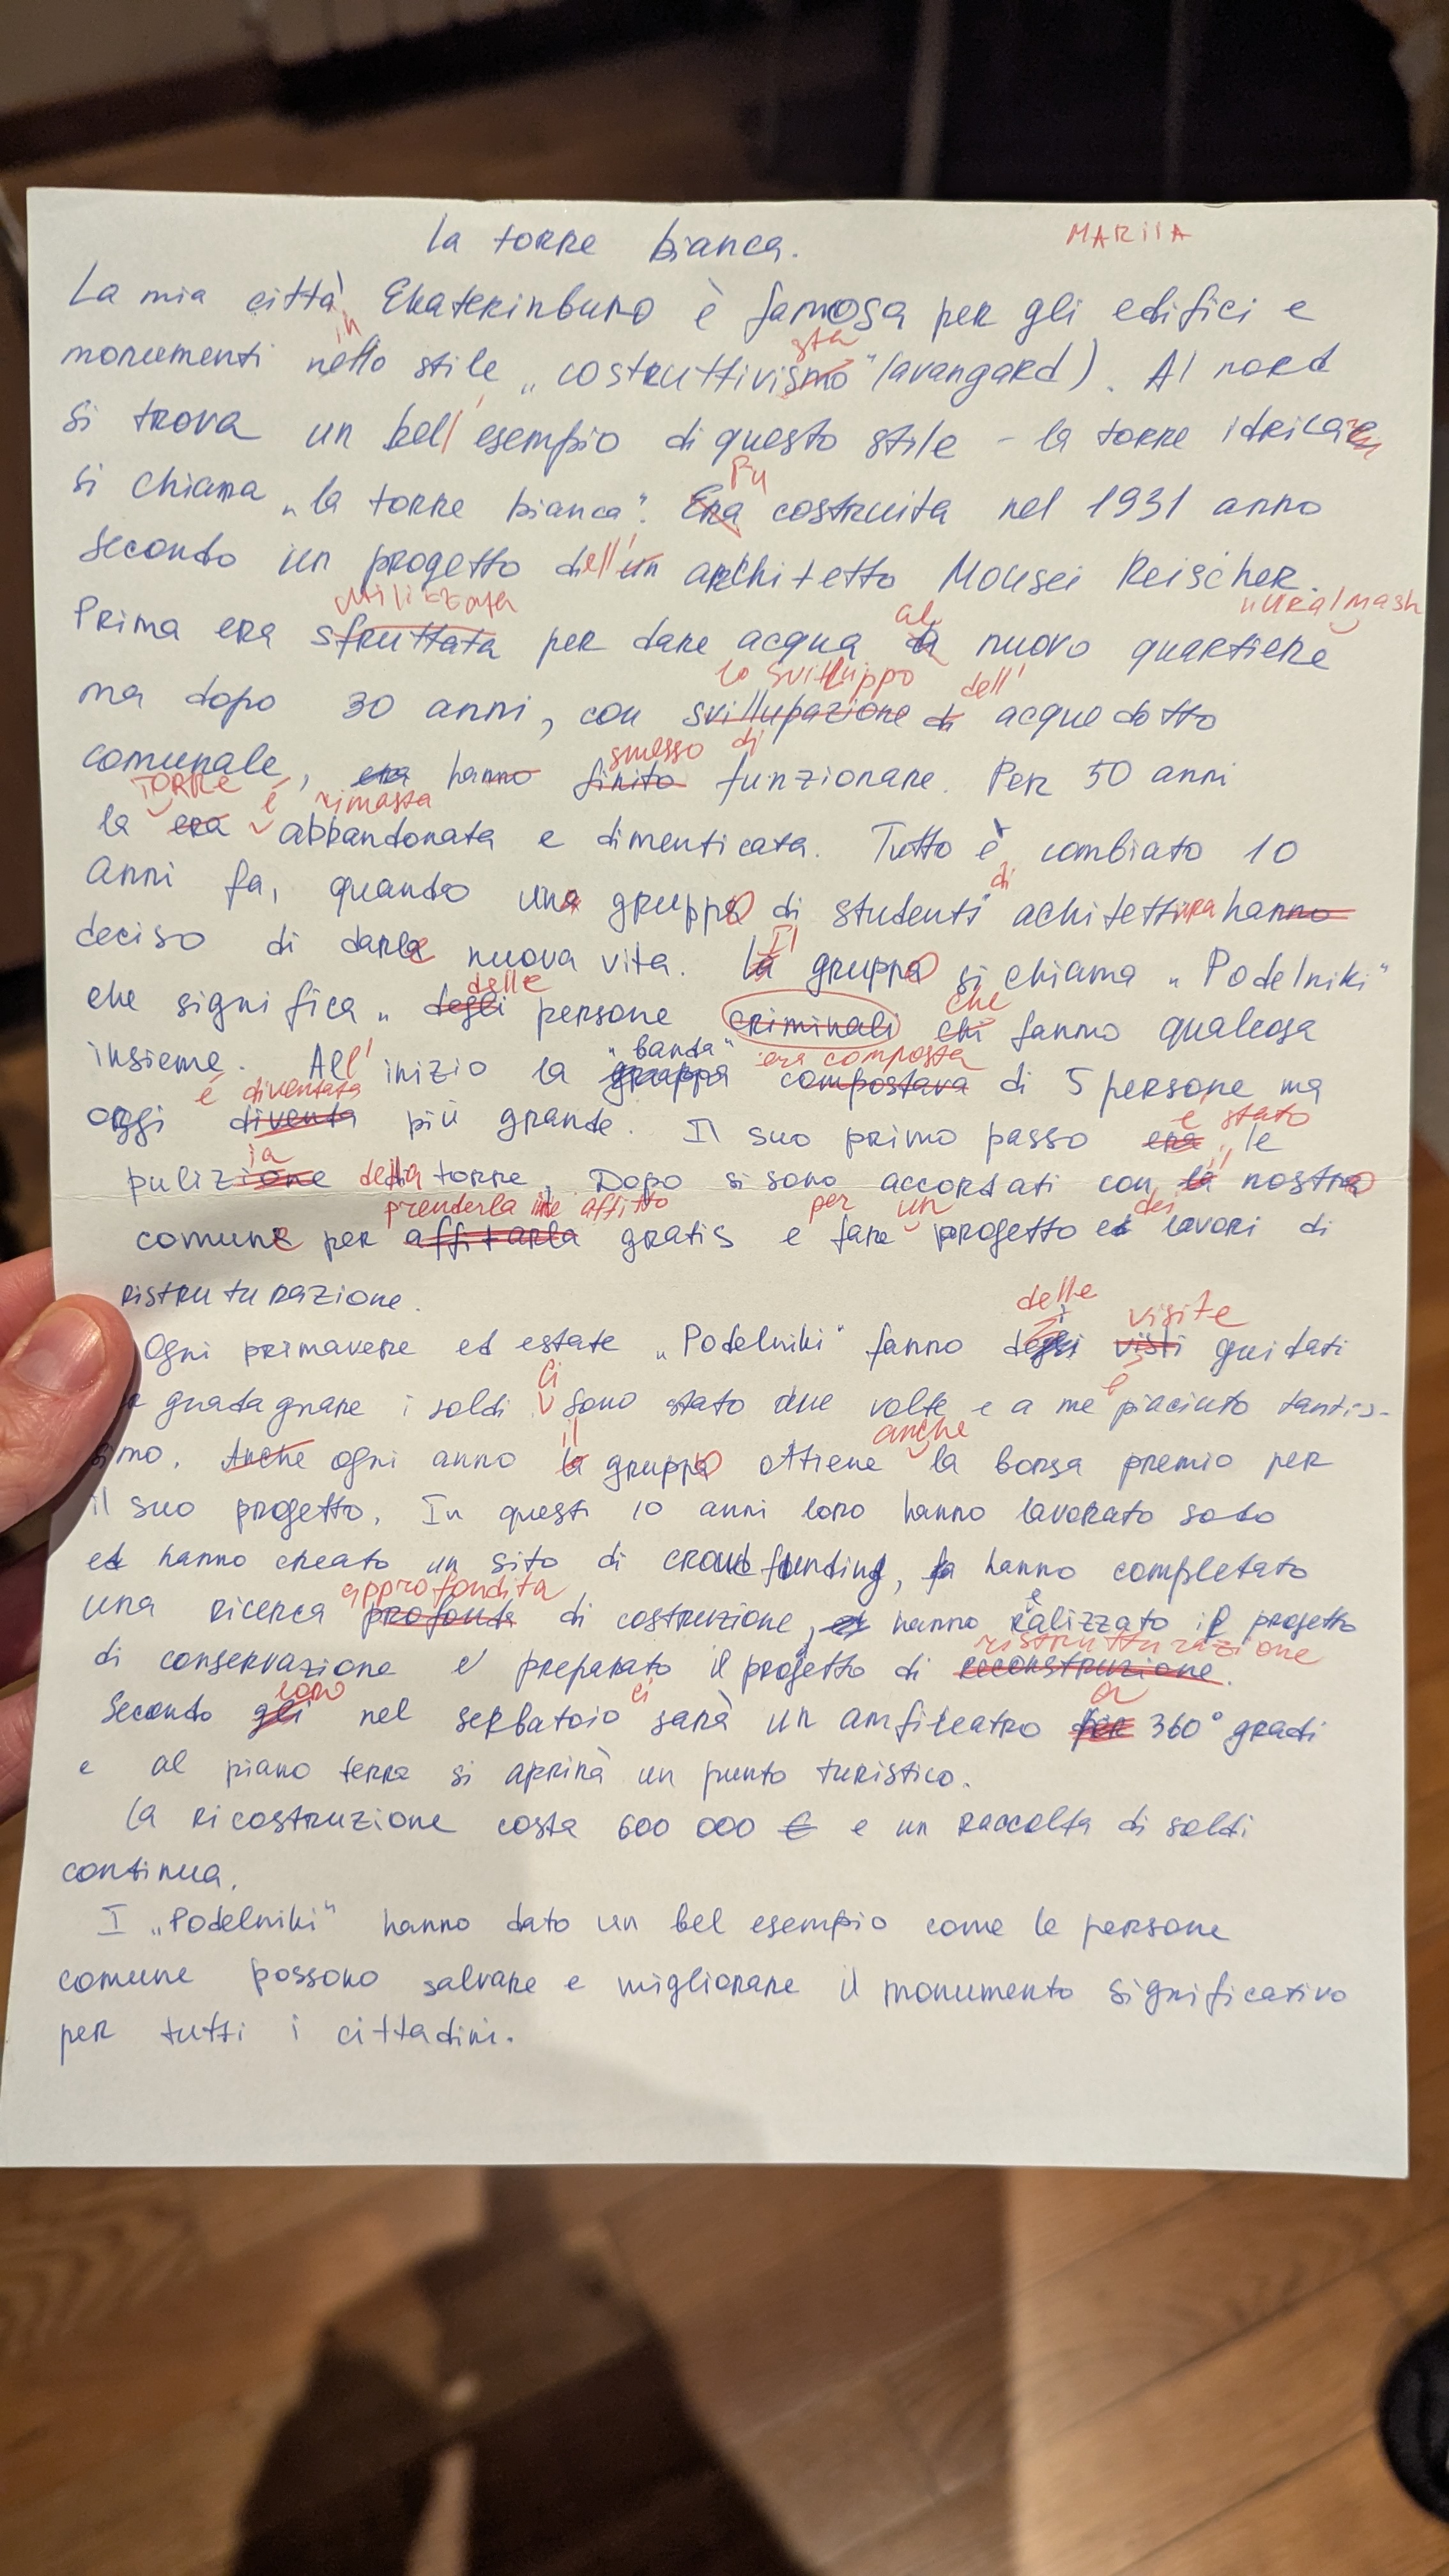 La torre bianca. MARIIA
La mia città Ekaterinburg è famosa per gli edifici e
in
sta
monumenti nello stile „costruttivismo" (avangard). Al nord
si trova un bell'esempio di questo stile – la torre idrica
Fu
si chiama „la torre bianca". Era costruita nel 1931 anno
secondo un progetto dell'un architetto Mousei Reischer.
utilizzata al "Uralmash
Prima era sfruttata per dare acqua nuovo quartiere
lo sviluppo dell'
ma dopo 30 anni, con svillupazione di acquedotto
smesso di
comunale, era hanno finito funzionare. Per 50 anni
torre è rimasta
la era abbandonata e dimenticata. Tutto è cambiato 10
di
anni fa, quando una gruppo di studenti achitettura hanno
deciso di darle nuova vita. Il gruppo si chiama „Podelniki"
delle che
che significa „degli persone criminali chi fanno qualcosa
"banda" era composta
insieme. All'inizio la gruppa compostava di 5 persone ma
è diventata è stato
oggi diventa più grande. Il suo primo passo era le
ia
pulizione della torre. Dopo si sono accordati con la nostro
prenderla in affitto per un dei
comune per affittarla gratis e fare progetto ed lavori di
ristruturazione.
delle visite
Ogni primavere ed estate „Podelniki" fanno degli visti guidati
ci è
guadagnare i soldi sono stato due volte e a me piaciuto tantis-
il anche
simo. Anche ogni anno la gruppo ottiene la borsa premio per
il suo progetto. In questi 10 anni loro hanno lavorato sodo
ed hanno creato un sito di crowdfunding, hanno completato
approfondita
una ricerca profonda di costruzione, ed hanno realizzato il progetto
ristrutturazione
di conservazione e preparato il progetto di reconstruzione.
loro ci a
Secondo gli nel serbatoio sarà un amfiteatro per 360° gradi
e al piano terra si aprirà un punto turistico.
La ricostruzione costa 600 000 € e un raccolta di soldi
continua.
I „Podelniki" hanno dato un bel esempio come le persone
comune possono salvare e migliorare il monumento significativo
per tutti i cittadini.